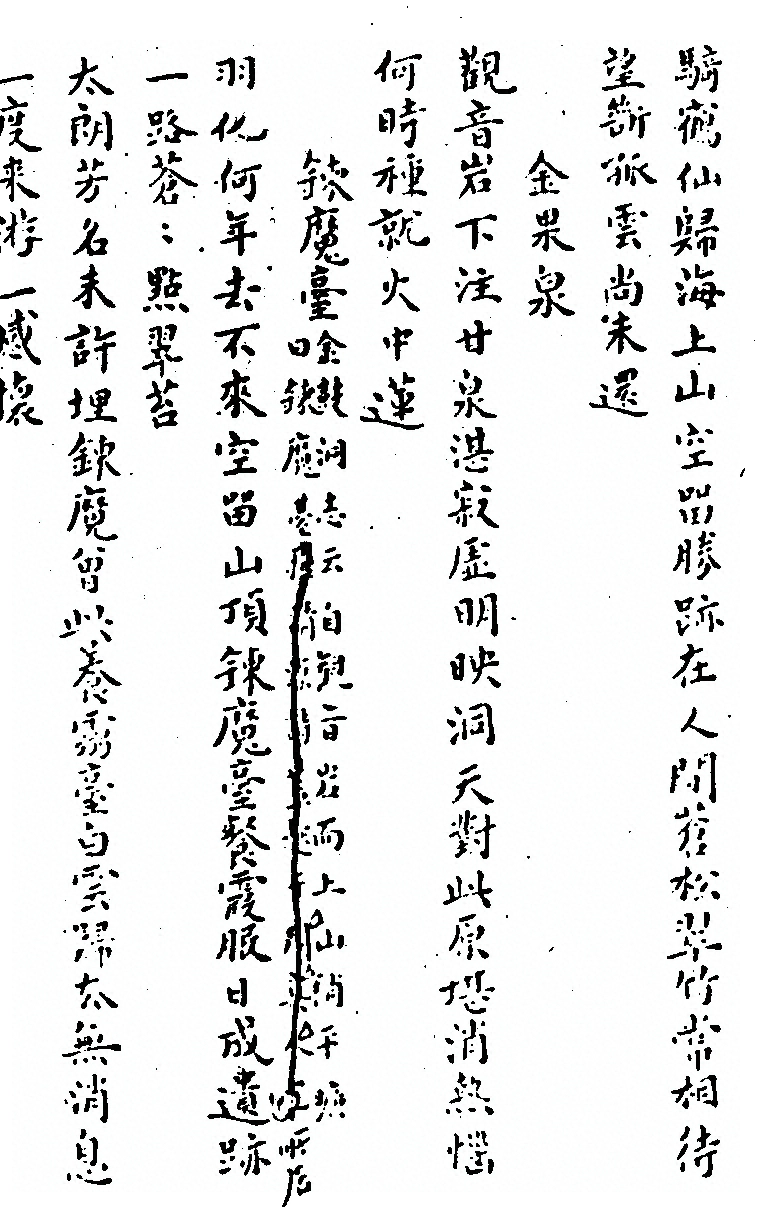 騎鶴仙歸海上山空留勝跡在人間蒼松翠竹常相待
望斷孤雲尚未還
金果泉
觀音岩下注甘泉湛寂虛明映洞天對此原堪消熱惱
何時種就火中蓮
鍊魔臺
金龍洞志云自觀音岩而上山稍平曠
曰鍊魔基
羽化何年去不來空留山頂鍊魔臺餐霞服日成遺跡
一路蒼〻點翠苔
太朗芳名未許埋鍊魔曾此養靈臺白雲歸太無消息
一度来游一感懷